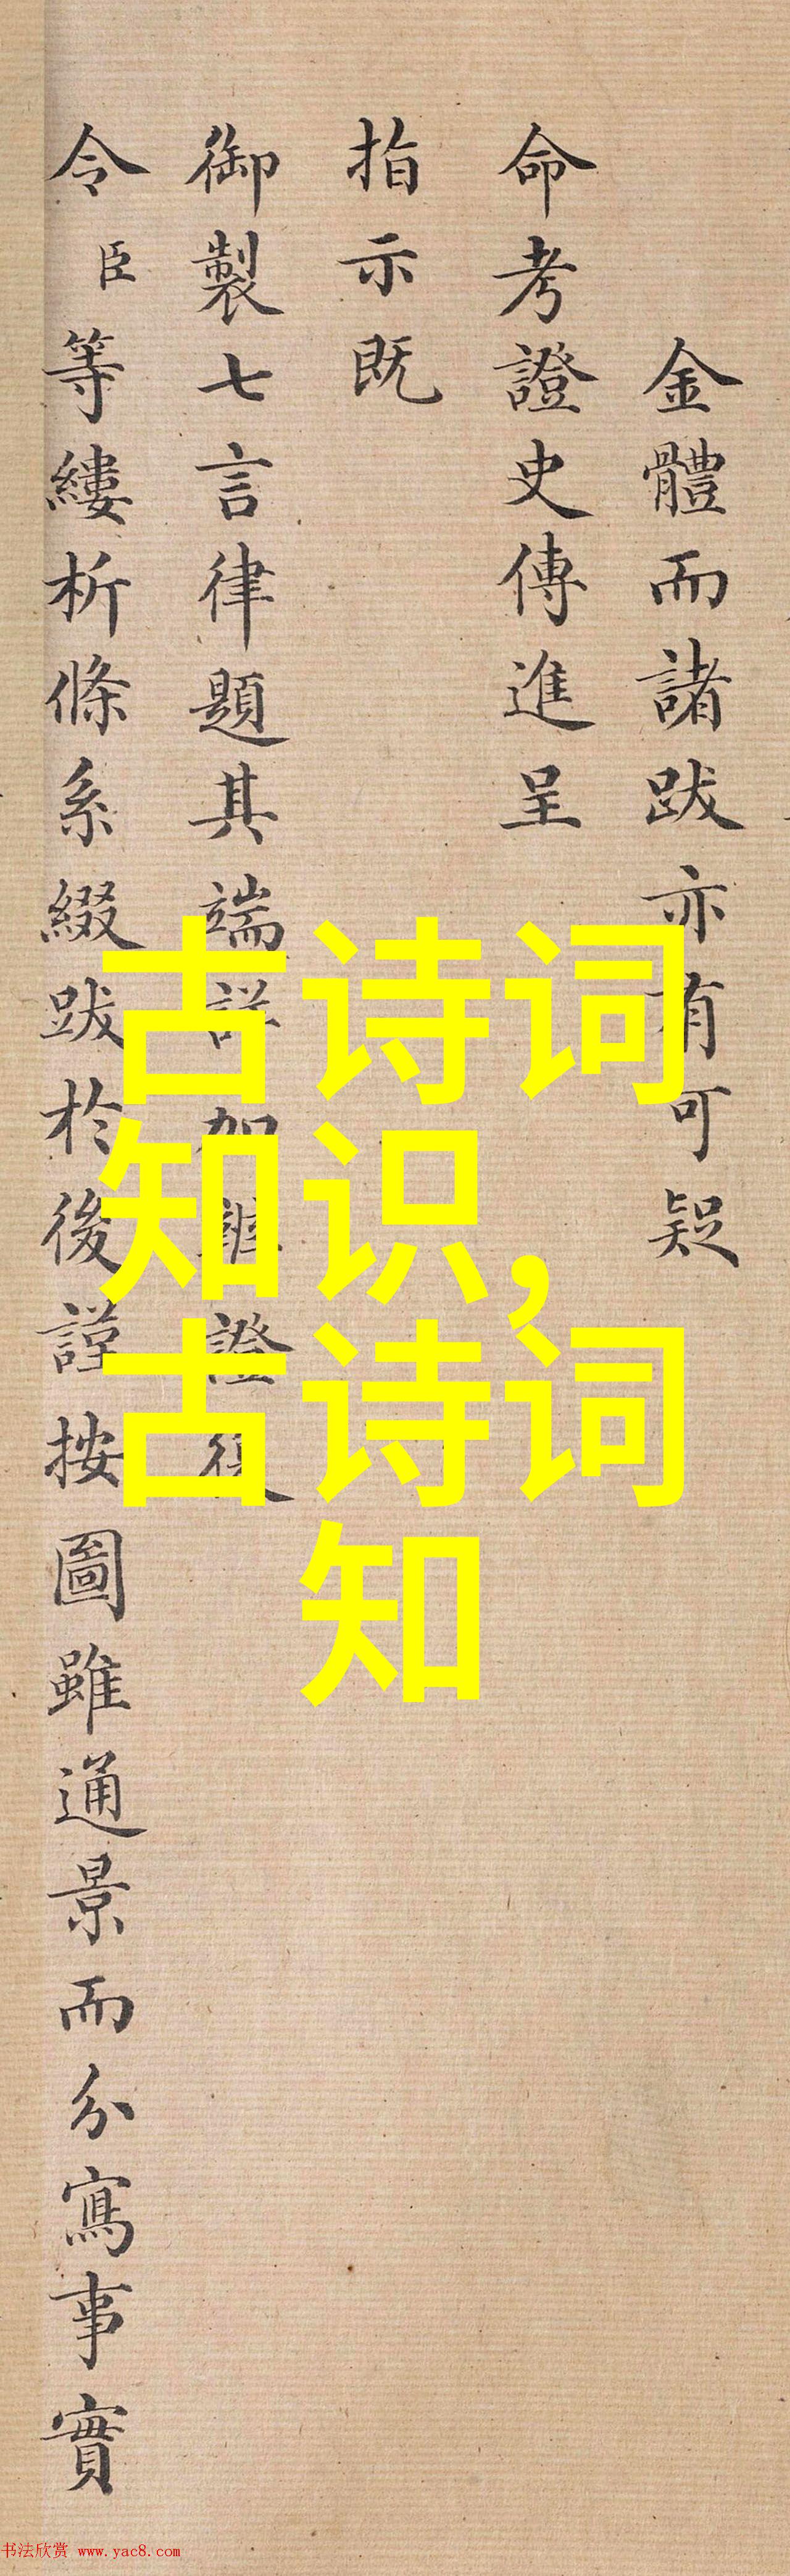 金體而諸跋亦有可疑
命考證史傳進呈
指示既
御製七言律題其端詳加辨證復
令臣等縷析條系綴跋於後謹按圖雖通景而分寫事實
古诗词
知识,
古诗词
知
书法欣赏 www.yac8.com